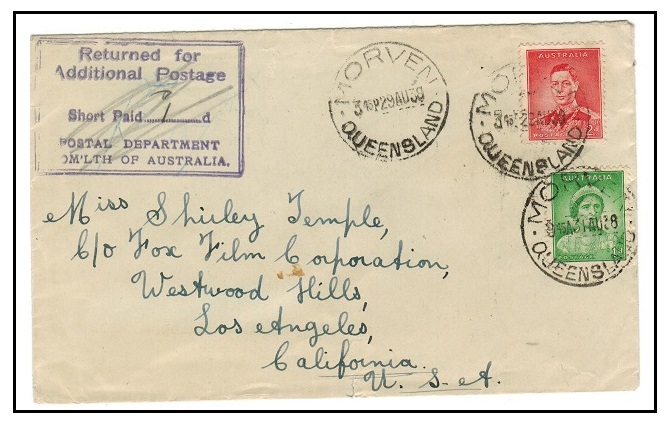 Returned for
Additional Postage
Short Paid 1 d
POSTAL DEPARTMENT
OM'LTH OF AUSTRALIA.
MORVEN
3 15P 29 AU 38
QUEENSLAND
AUSTRALIA
2
POSTAGE
QUEENSLAND
AUSTRALIA
31 AU 38
QUEENSLAND
Miss Shirley Temple,
C/o Fox Film Corporation,
Westwood Hills,
Los Angeles,
California.
U. S. A.